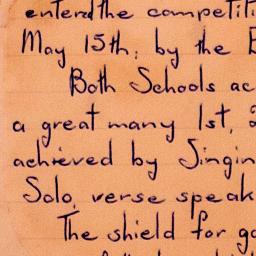 entered the competiti
May 15th, by the
Both Schools ac
a great many 1st,
achieved by Singin
Solo, verse speak
The shield for go